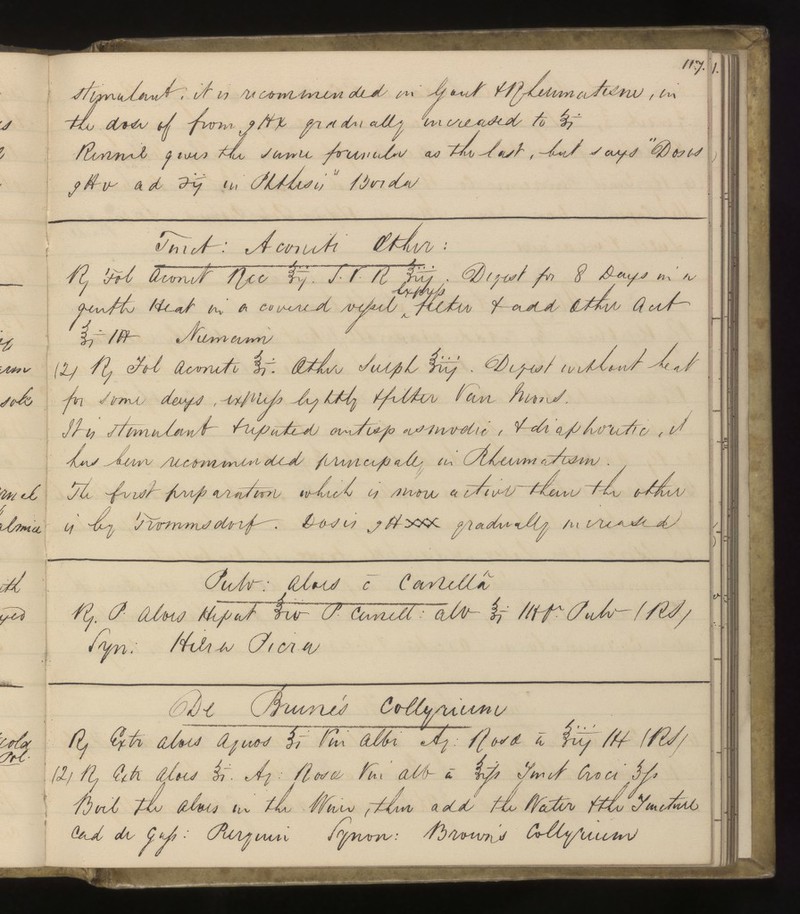 117.
stimulant. it is recommended in Gout & Rheumatism, in
the dose of from gtt x gradually increased to ʒi
gives the same formula as the last, but says "Dosis
gtt v ad ʒij in Phthisis" Borda
Tinct: Aconiti Æther:
℞ Fol Aconit Rec ℥ij. S.V.R ℥iij. Digest for 8 Days in a
gentle Heat in a covered vessel, express filter & add Æther Acet
℥i M Niemann
(2) ℞ Fol Aconiti ℥i. Æther Sulph ℥iij. Digest without heat
for some days, express lightly & filter Van Mons.
It is stimulant & reputed antispasmodic, & diaphoretic, it
has been recommended principally in Rheumatism.
The first preparation which is more active than the other
is by Trommsdorf. Dosis gtt xxx gradually increased
Pulv: Aloes c̄ Canellâ
℞. P. Aloes Hepat ℥iv P. Canell: alb ℥i M ft Pulv (RS)
Syn: Hiera Picra
De Brune's Collyrium
℞ Extr aloes aquos ʒi Vini albi Aq: Rosæ ā ℥iij M (RS)
(2) ℞ Extr Aloes ʒi. Aq: Rosæ Vini alb ā ℥iſs Tinct Croci ʒſs
Boil the aloes in the Wine, then add the Water & the Tincture
Cad de Gaſs: Pierquin Synon: Brown's Collyrium